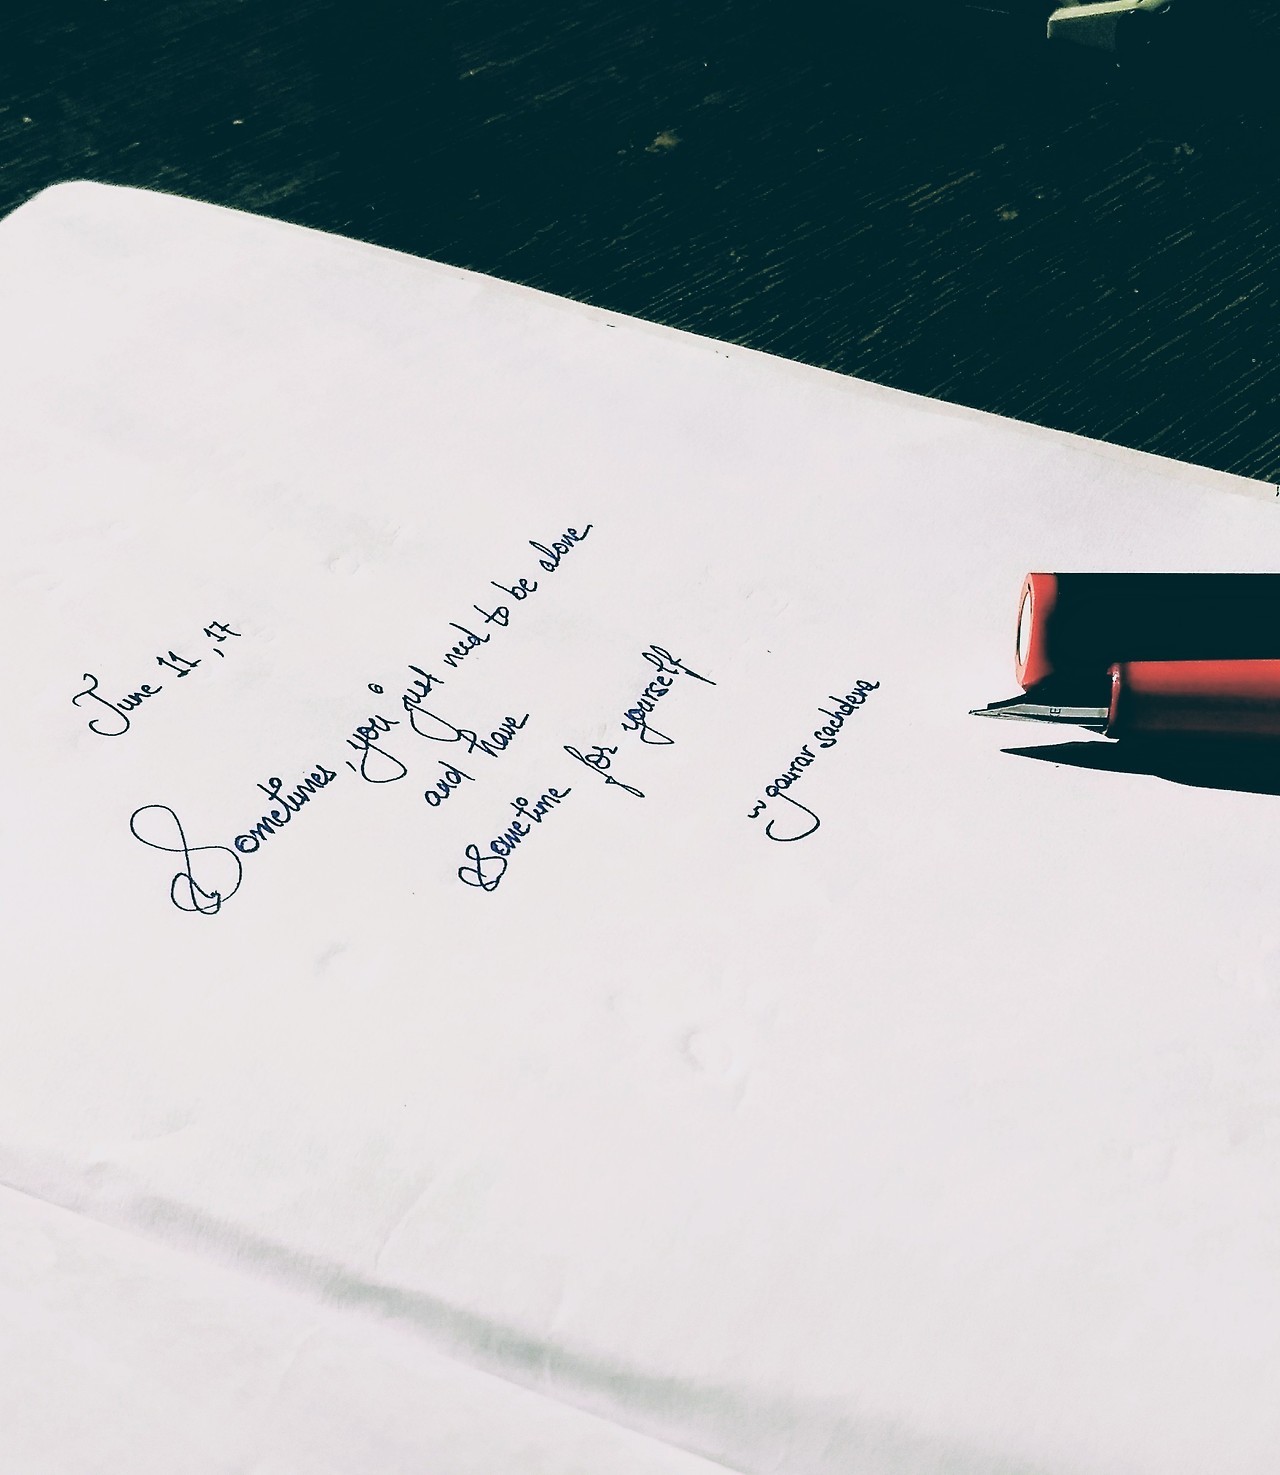 June 11, 17
Sometimes, you just need to be alone
and have
Sometime for yourself
~ gaurav sachdeva